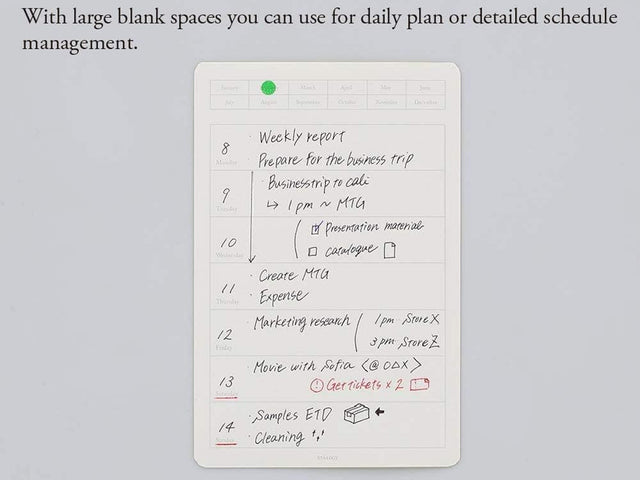 With large blank spaces you can use for daily plan or detailed schedule
management.
January March April May June
July August September October November December
8 Monday · Weekly report
· Prepare for the business trip
9 Tuesday · Business trip to cali
↳ 1 pm ~ MTG
10 Wednesday ☑ Presentation material
☐ catalogue
11 Thursday · Create MTG
· Expense
12 Friday · Marketing research 1 pm · Store X
3 pm · Store Z
13 Saturday · Movie with Sofia <@ O△X>
! Get tickets x 2
14 Sunday · Samples ETD
· Cleaning